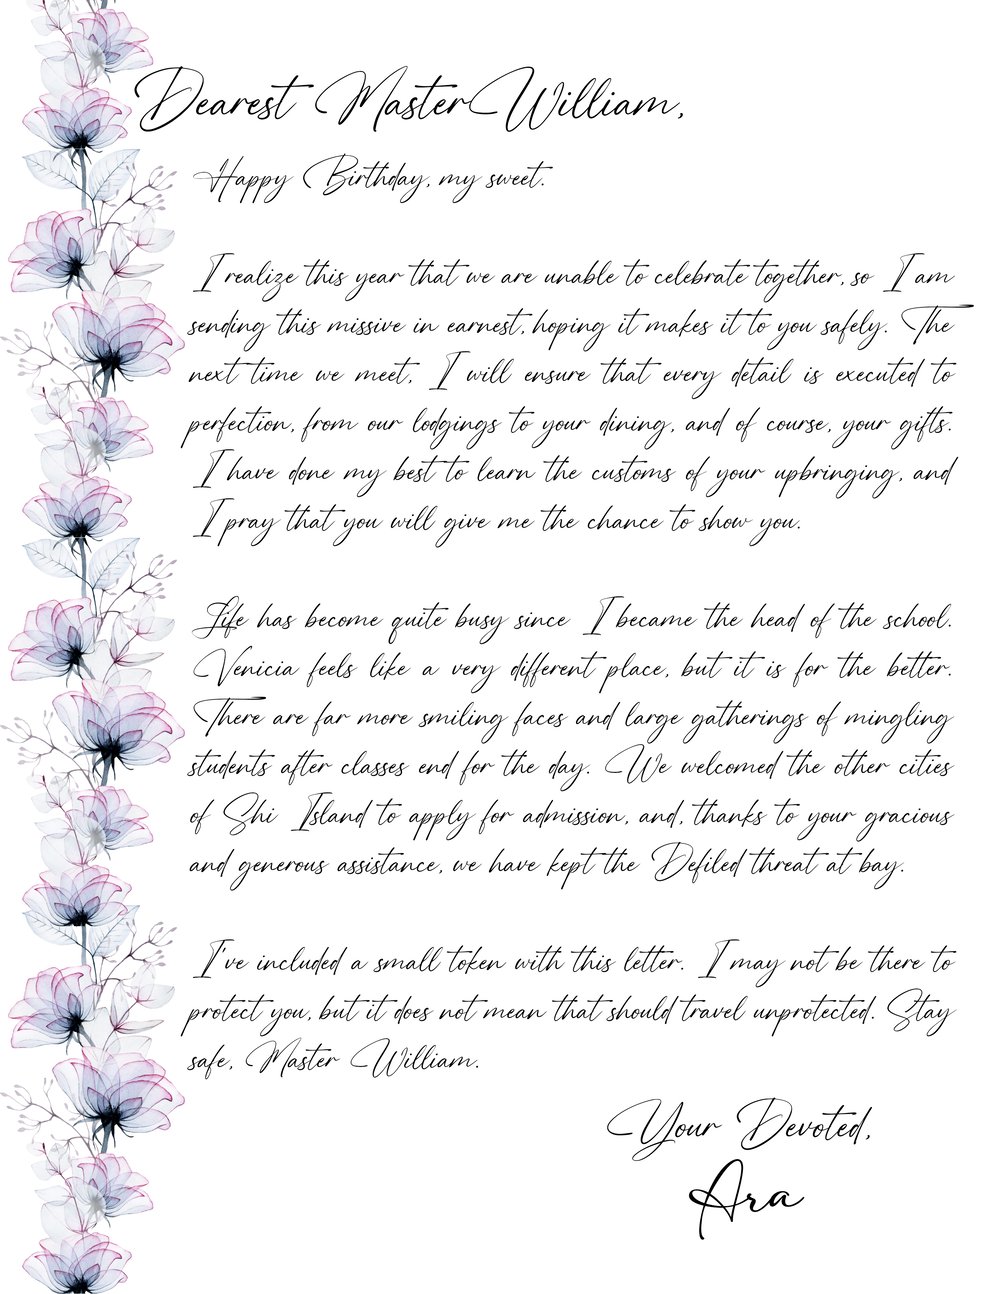 Dearest Master William,
Happy Birthday, my sweet.
I realize this year that we are unable to celebrate together, so I am
sending this missive in earnest, hoping it makes it to you safely. The
next time we meet, I will ensure that every detail is executed to
perfection, from our lodgings to your dining, and of course, your gifts.
I have done my best to learn the customs of your upbringing, and
I pray that you will give me the chance to show you.
Life has become quite busy since I became the head of the school.
Venicia feels like a very different place, but it is for the better.
There are far more smiling faces and large gatherings of mingling
students after classes end for the day. We welcomed the other cities
of Shi Island to apply for admission, and, thanks to your gracious
and generous assistance, we have kept the Defiled threat at bay.
I've included a small token with this letter. I may not be there to
protect you, but it does not mean that should travel unprotected. Stay
safe, Master William.
Your Devoted,
Ara